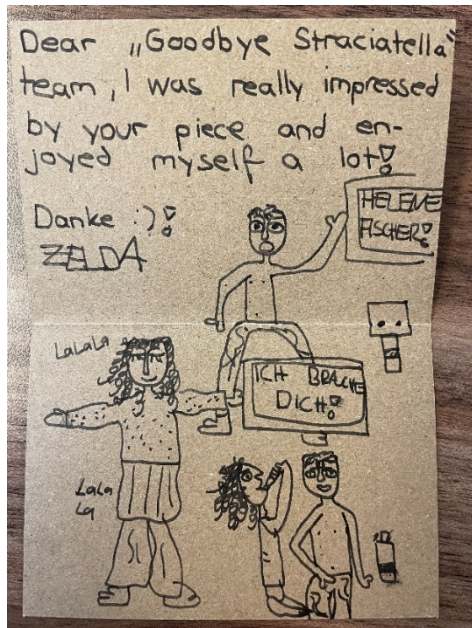 Dear „Goodbye Straciatella“
team, I was really impressed
by your piece and en-
joyed myself a lot!
Danke :)!
ZELDA
HELENE
FISCHER!
LaLaLa
ICH BRAUCHE
DICH!
LaLa
La